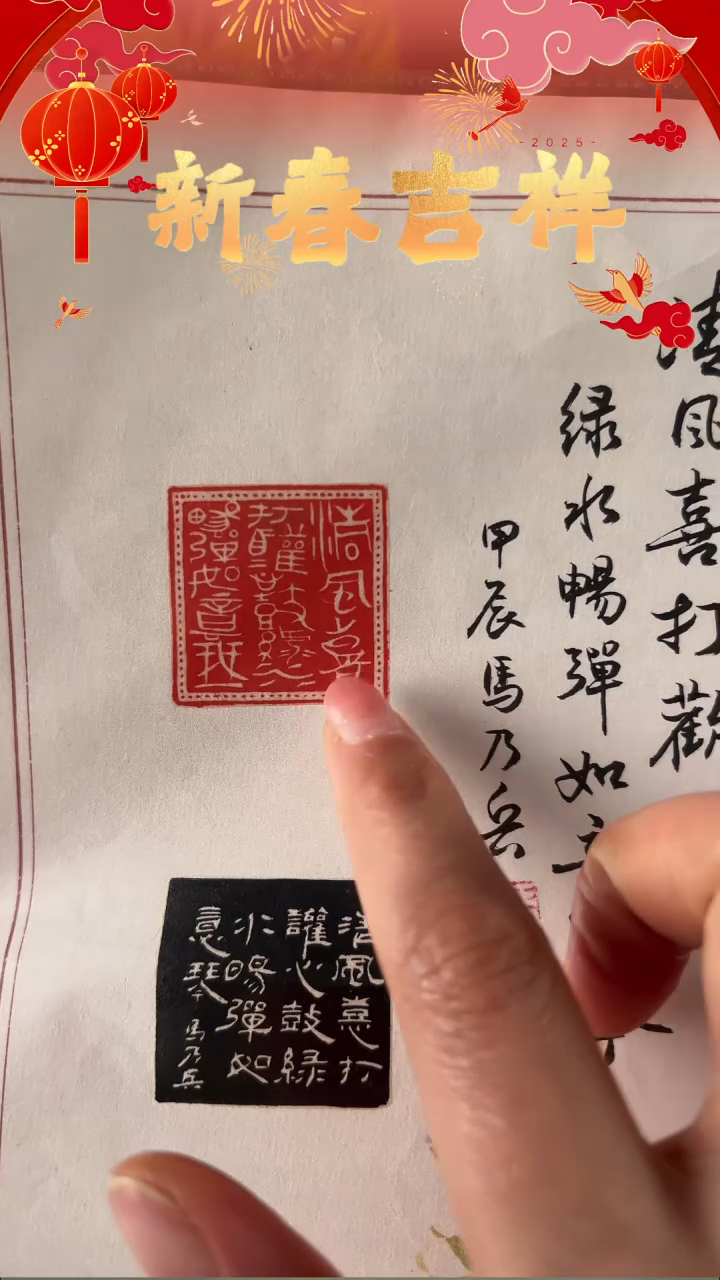 -2025-
新春吉祥
清風喜打歡
緑水暢彈如
甲辰馬乃兵
清風喜
打讙心鼓緑水
暢彈如意琴
清風憙打
讙心鼓緑
水暢彈如
意琴 馬乃兵